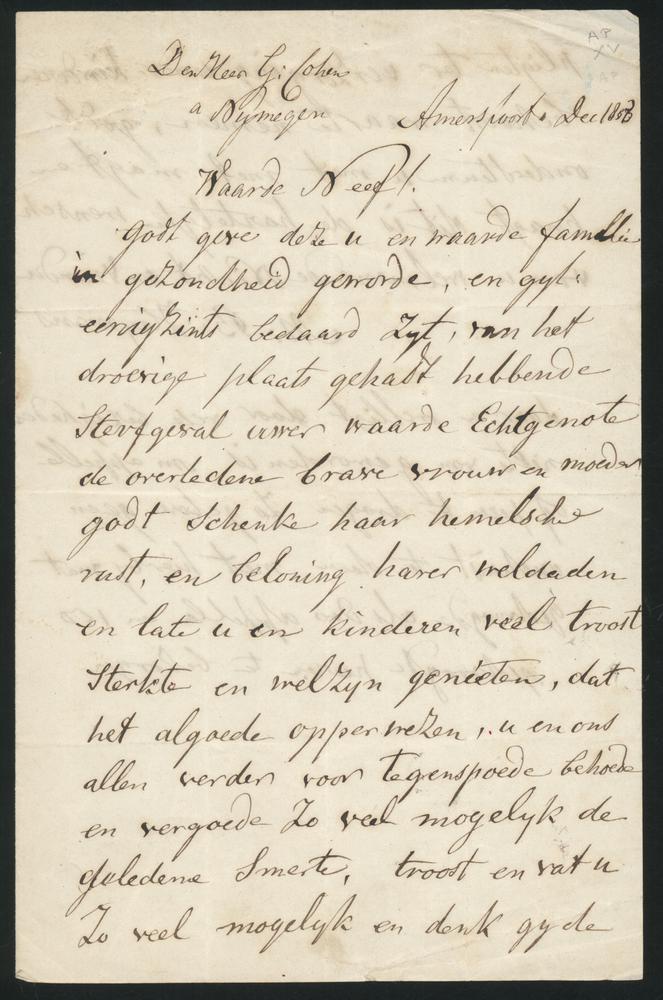 AP
XV
Den Heer G: Cohen
a Nymegen
Amersfoort. Dec 1858
Waarde Neef!.
godt geve deze u en waarde familie
in gezondheid geworde, en gyl:
eenigzints bedaard Zyt, van het
droevige plaats gehadt hebbende
Sterfgeval uwer waarde Echtgenote
de overledene brave vrouw en moeder
godt Schenke haar hemelsche
rust, en beloning harer weldaden
en late u en kinderen veel troost
Sterkte en welzyn genieten, dat
het algoede opperwezen, u en ons
allen verder voor tegenspoede behoede
en vergoede Zo veel mogelyk de
geledene Smerte, troost en vat u
Zo veel mogelyk en denk gy de